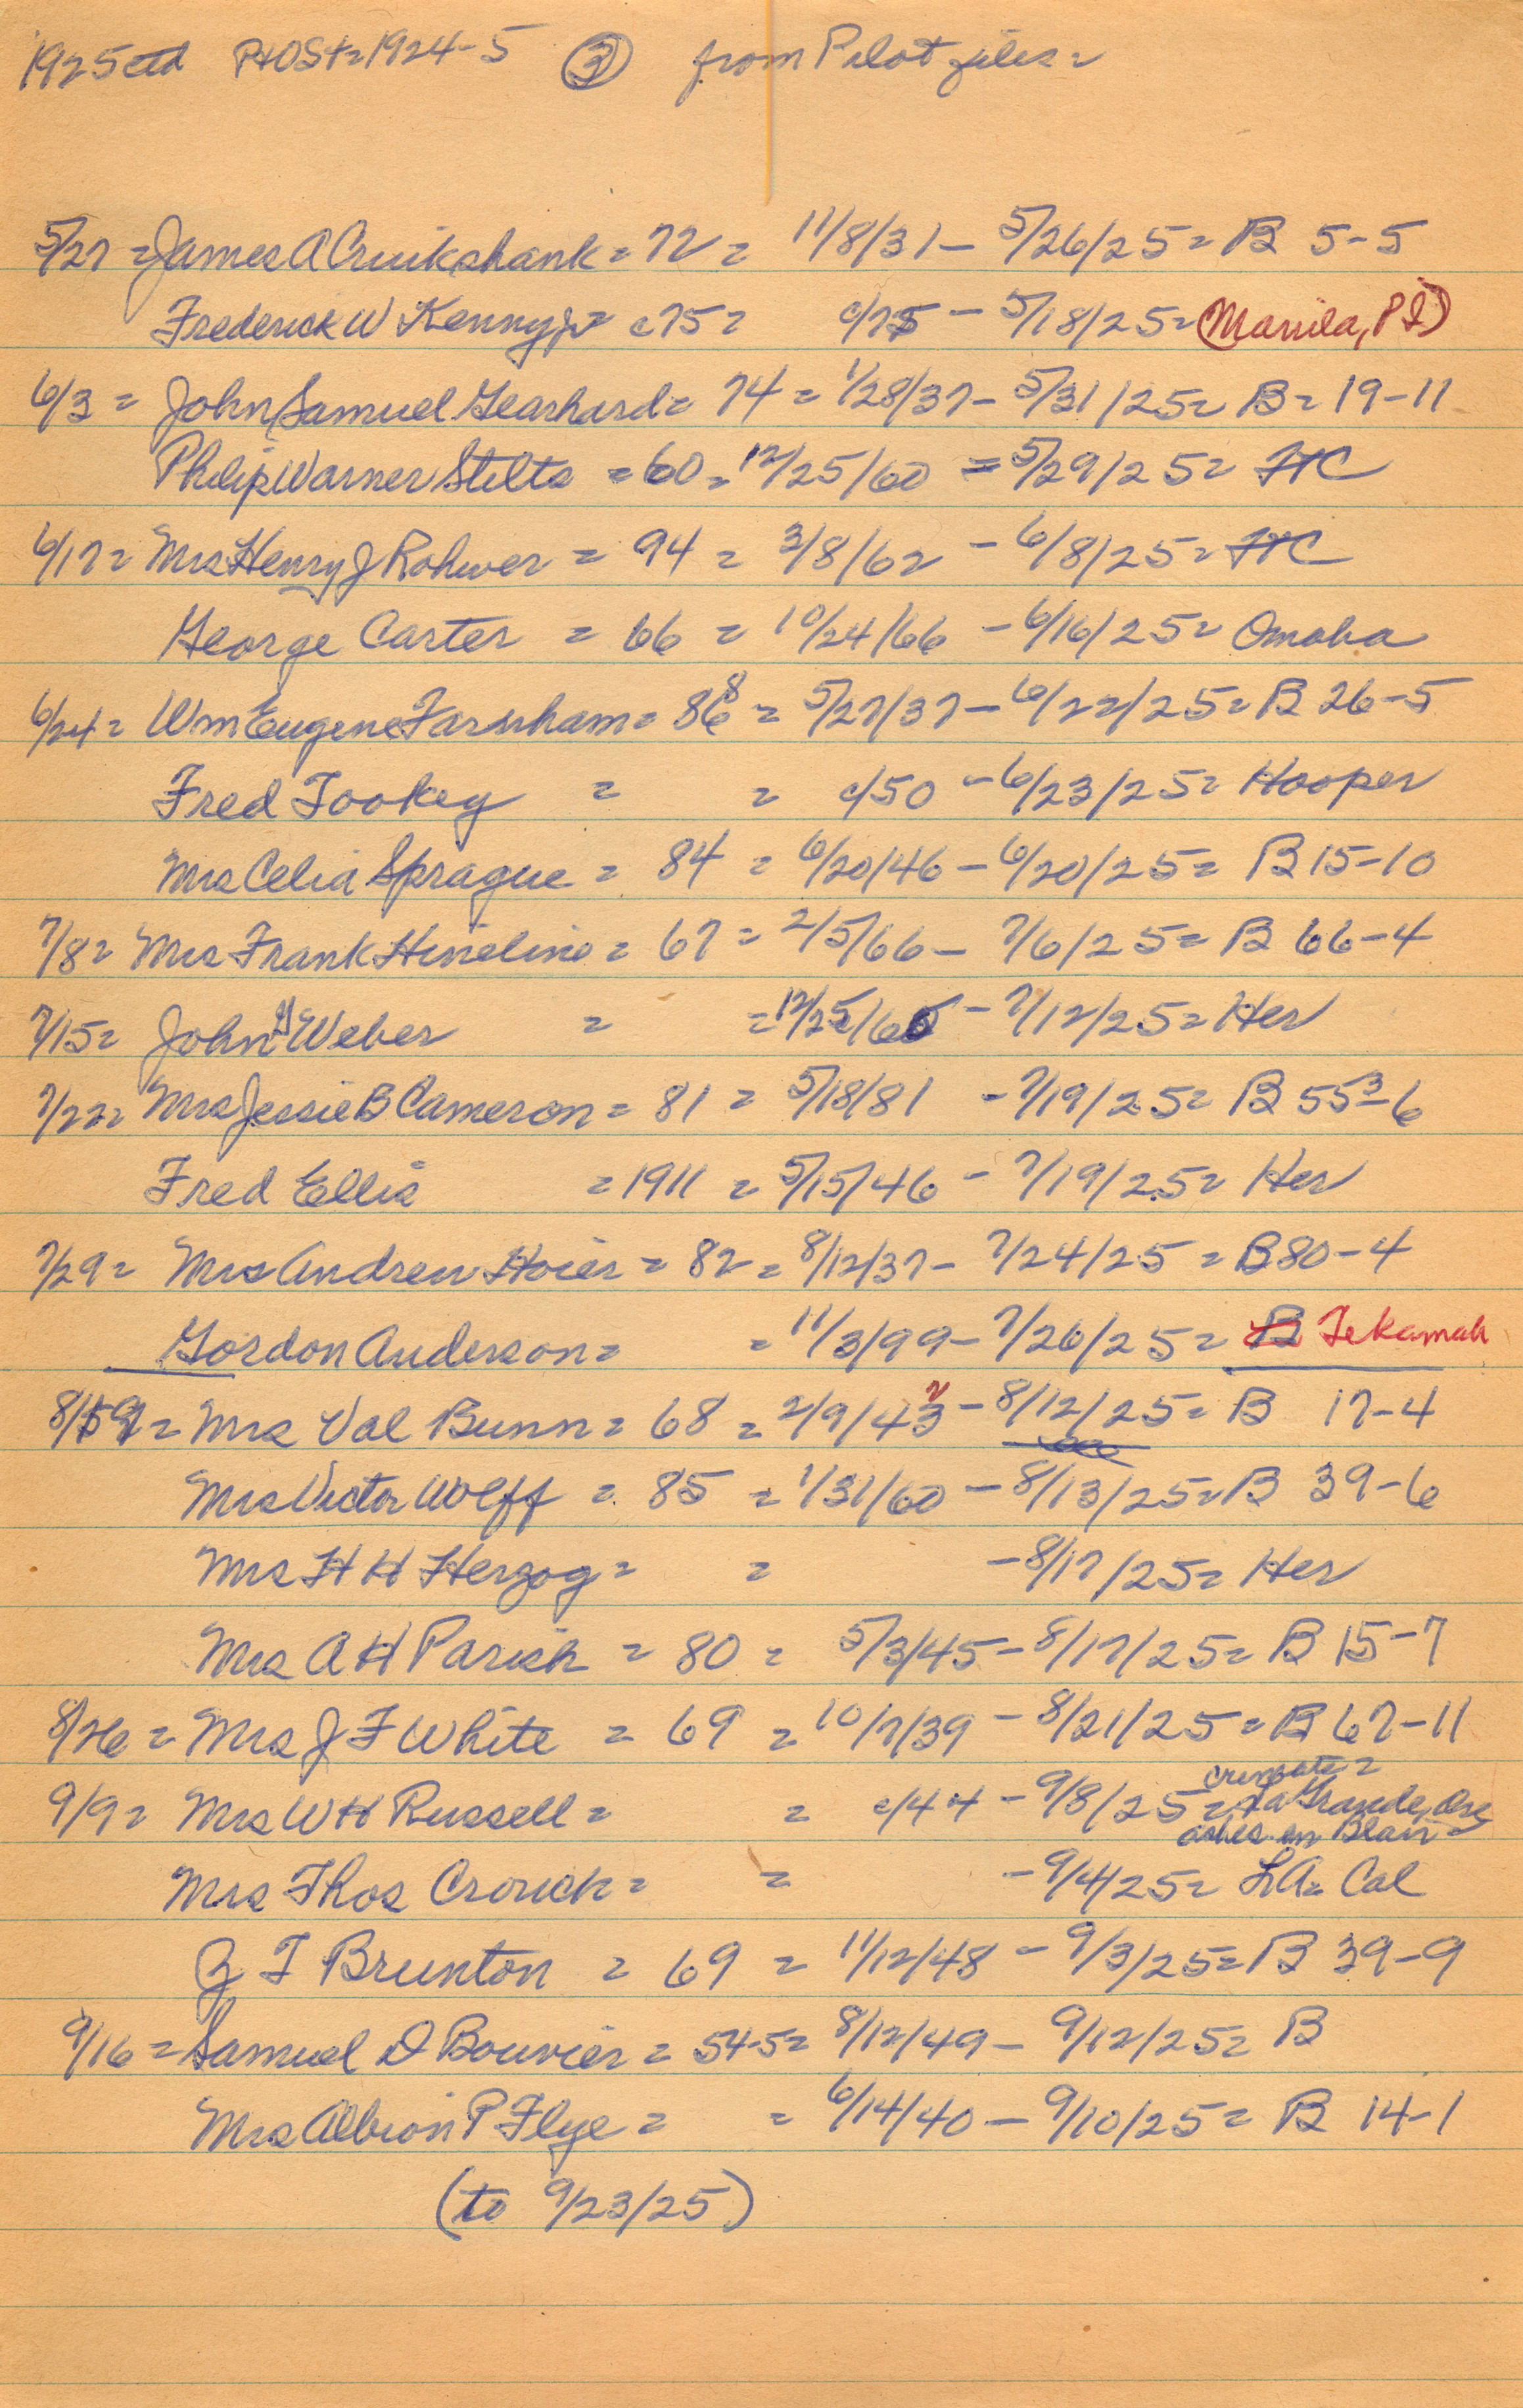 1925 ctd P+OSt=1924-5 ③ from Pilot files=
5/27 = James A Cruikshank = 72 = 11/8/31 - 5/26/25 = B 5-5
Frederick W Kenny jr = c75 = c/75 - 5/18/25 = (Manila, P I)
6/3 = John Samuel Gearhard = 74 = 1/28/37 - 5/31/25 = B = 19-11
Philip Warner Stilts = 60 = 12/25/60 = 5/29/25 = FtC
6/17 = Mrs Henry J Rohwer = 94 = 3/8/62 - 6/8/25 = FtC
George Carter = 66 = 10/24/66 - 6/16/25 = Omaha
6/24 = Wm Eugene Farnham = 86 8 = 5/27/37 - 6/22/25 = B 26-5
Fred Tookey = = c/50 - 6/23/25 = Hooper
Mrs Celia Sprague = 84 = 6/20/46 - 6/20/25 = B 15-10
7/8 = Mrs Frank Hineline = 67 = 2/5/66 - 7/6/25 = B 66-4
7/15 = John Weber = = 12/25/60 - 7/12/25 = Her
7/22 = Mrs Jessie B Cameron = 81 = 5/18/81 - 7/19/25 = B 55 3-6
Fred Ellis = 1911 = 5/15/46 - 7/19/25 = Her
7/29 = Mrs Andrew Hoier = 82 = 8/12/37 - 7/24/25 = B 80-4
Gordon Anderson = = 11/3/99 - 7/26/25 = B Tekamah
8/19 = Mrs Val Bunn = 68 = 2/9/43 2 - 8/12/25 = B 17-4
Mrs Victor Wolff = 85 = 1/31/60 - 8/13/25 = B 39-6
Mrs H H Herzog = = - 8/17/25 = Her
Mrs A H Parish = 80 = 5/3/45 - 8/17/25 = B 15-7
8/26 = Mrs J F White = 69 = 10/7/39 - 8/21/25 = B 67-11
cremate =
9/9 = Mrs W H Russell = = c/44 - 9/8/25 = La Grande, Ore
ashes in Blair =
Mrs Thos Crouch = = - 9/4/25 = LA = Cal
G T Brunton = 69 = 11/12/48 - 9/3/25 = B 39-9
9/16 = Samuel D Bouvier = 54-5 = 8/12/49 - 9/12/25 = B
Mrs Albion P Flye = = 6/14/40 - 9/10/25 = B 14-1
(to 9/23/25)